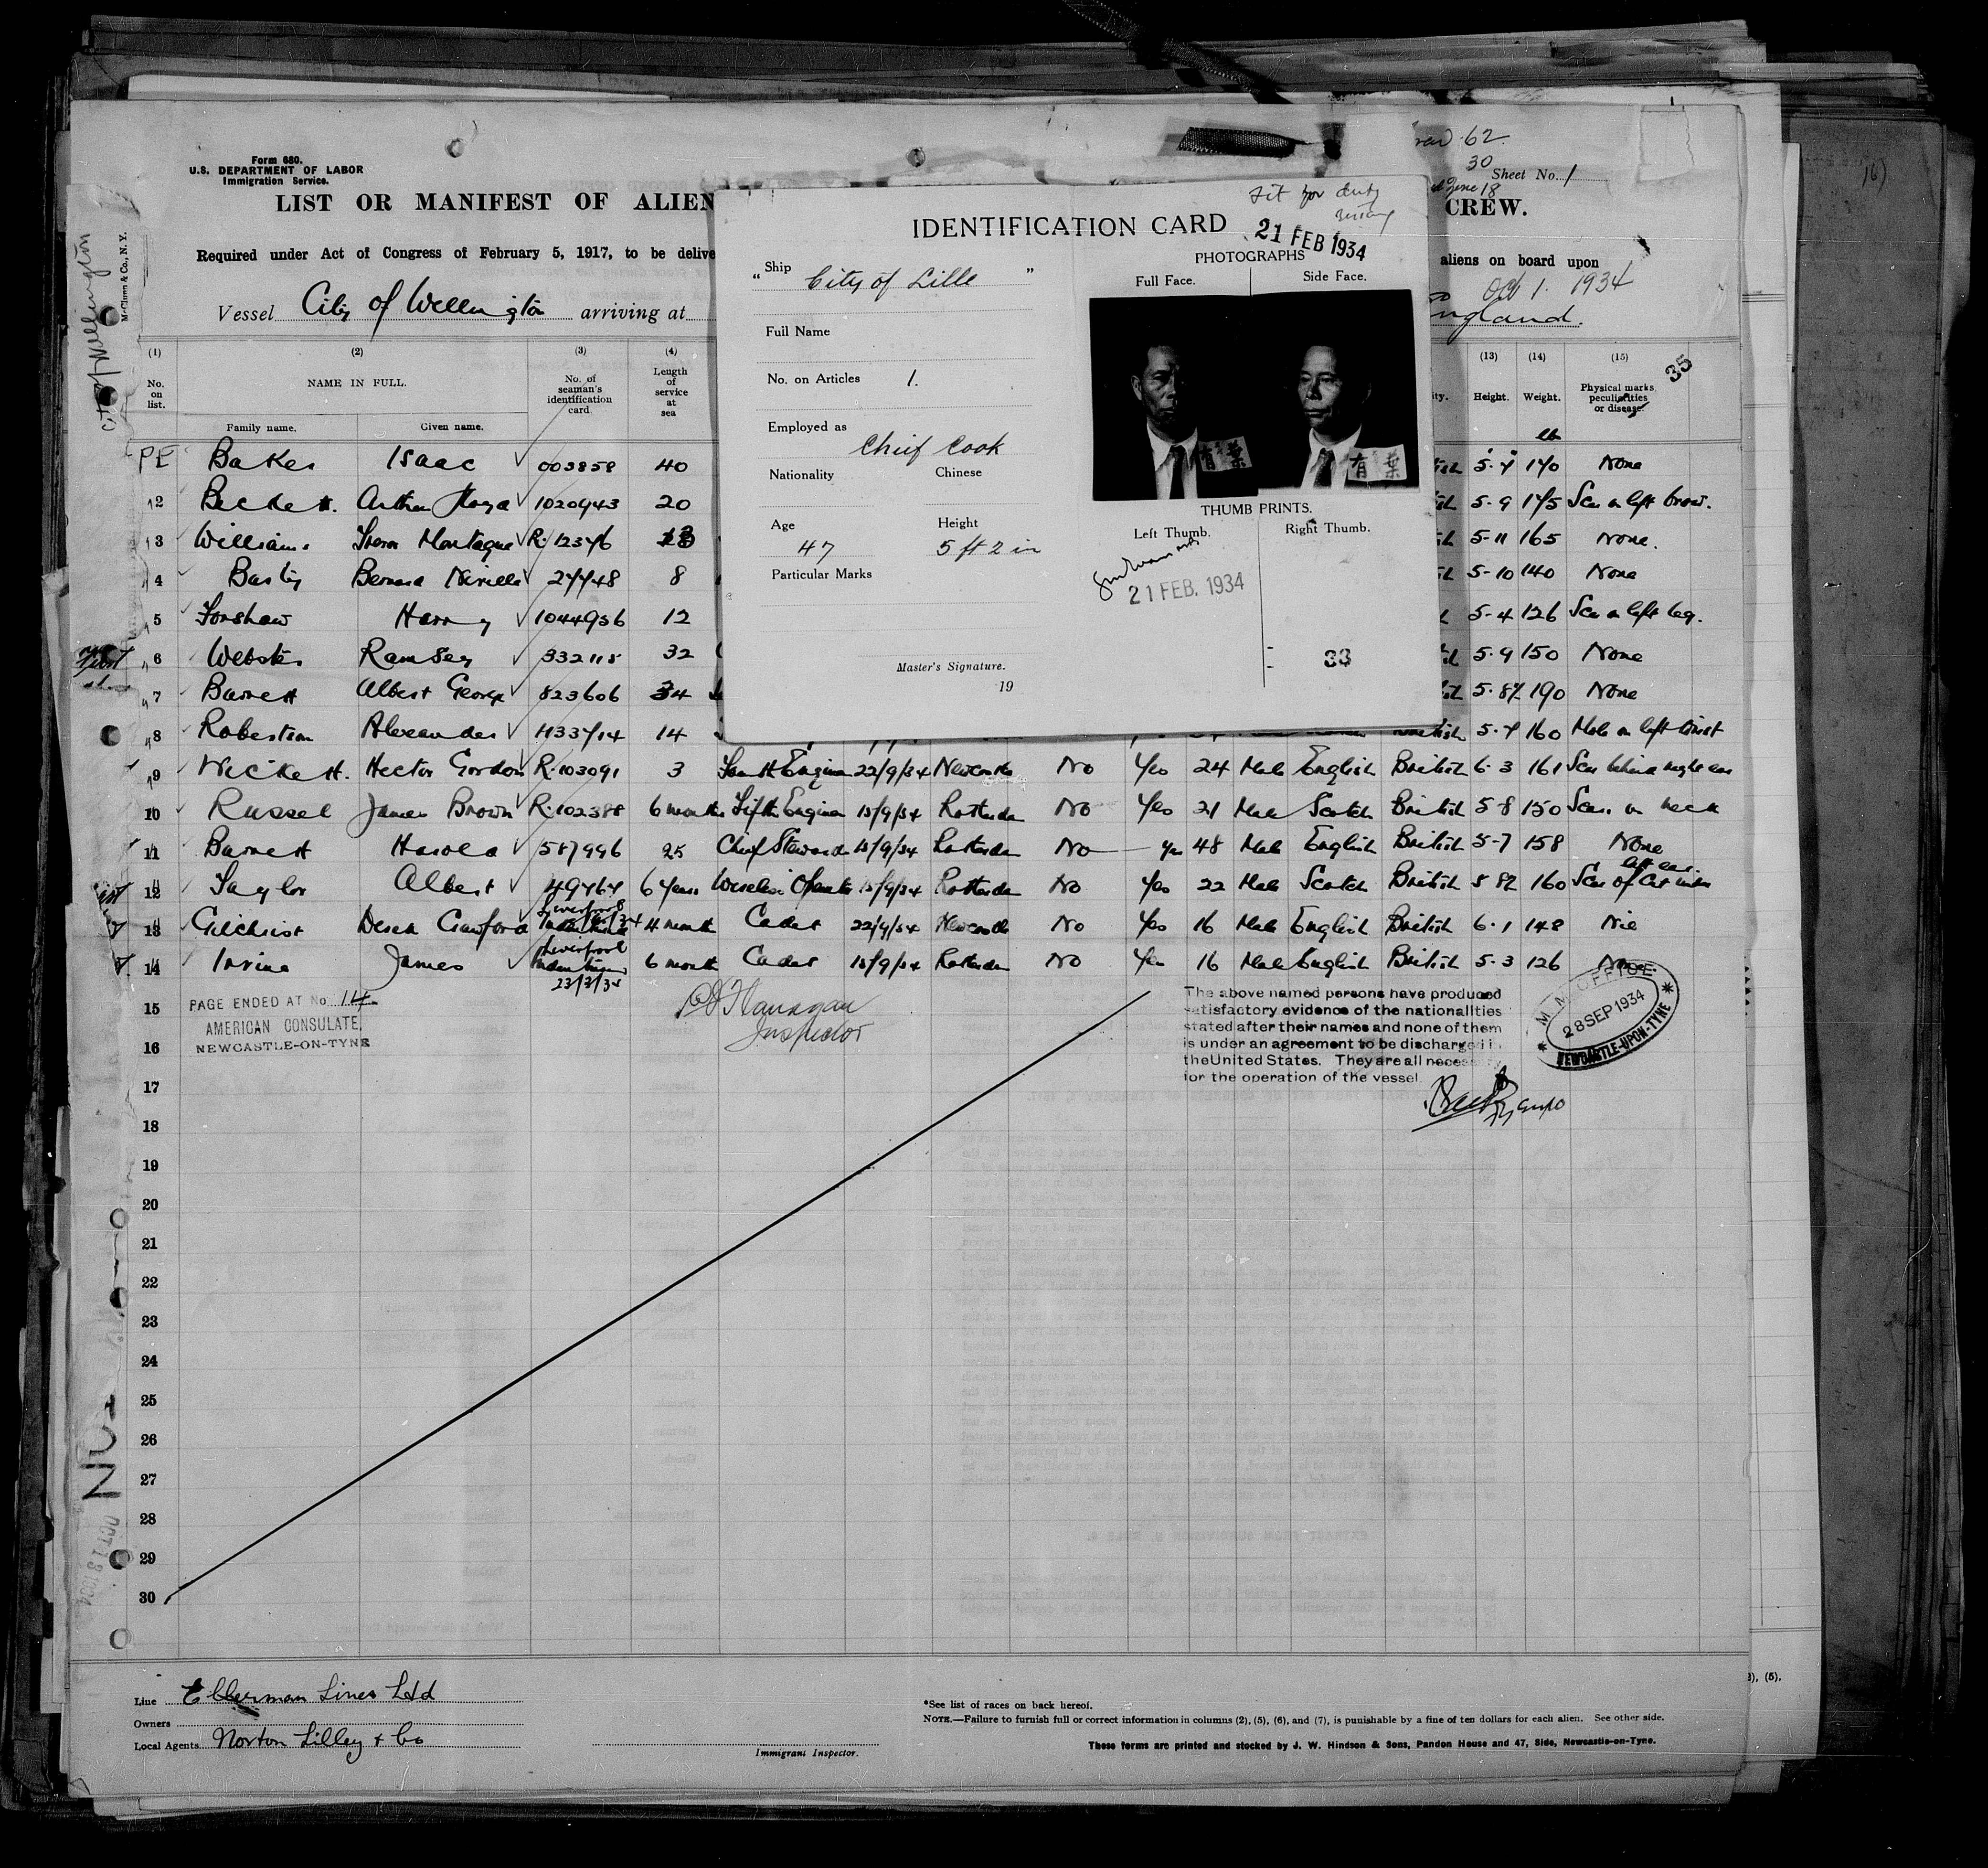 Form 680.
U.S. DEPARTMENT OF LABOR
Immigration Service.
LIST OR MANIFEST OF ALIEN
CREW.
62
30
Sheet No. 1
Required under Act of Congress of February 5, 1917, to be delive
aliens on board upon
Oct 1. 1934
Vessel City of Wellington arriving at
England.
City of Wellington
McClunn & Co., N. Y.
IDENTIFICATION CARD
Fit for duty
21 FEB 1934
PHOTOGRAPHS
Full Face. Side Face.
"Ship City of Lille "
Full Name
No. on Articles 1.
Employed as
Chief Cook
Nationality Chinese
Age Height
47 5 ft 2 in
Particular Marks
有葉
有葉
THUMB PRINTS.
Left Thumb. Right Thumb.
21 FEB. 1934
33
Master's Signature.
19
(1) (2) (3) (4) (13) (14) (15)
35
No. on list. NAME IN FULL. No. of seaman's identification card Length of service at sea ity. Height. Weight. Physical marks, peculiarities or disease.
Family name. Given name. lb
PE Baker Isaac 003858 40 5·7 170 None
2 Beckett. Arthur 1020943 20 5-9 175 Scar on left brow.
3 Williams Montague R·12376 13 5-11 165 None.
4 Bernard Neville 27748 8 5-10 140 None
5 Forshaw Harry 1044936 12 5-4 126 Scar on left leg.
6 Webster Ramsey 332118 32 5.9 150 None
7 Barnett Albert George 823606 34 5·8½ 190 None
8 Robertson Alexander 1133714 14 British 5-7 160 Mole on left wrist
9 Wickett. Hector Gordon R·103091 3 Fourth Engineer 22/9/34 Newcastle No Yes 24 Male English British 6·3 161 Scar behind right ear
10 Russel James Brown R·102388 6 months Fifth Engineer 15/9/34 Rotterdam No Yes 21 Male Scotch British 5-8 150 Scar on neck
11 Barnett Harold 587996 25 Chief Steward 15/9/34 Rotterdam No Yes 48 Male English British 5-7 158 None
12 Taylor Albert 49767 6 Years Wireless Operator 15/9/34 Rotterdam No Yes 22 Male Scotch British 5 8½ 160 Scar of cut under left ear.
13 Gilchrist Derek Crawford Liverpool Indentures 4 month Cadet 22/9/34 Newcastle No Yes 16 Male English British 6·1 148 Nil
14 Irvine James Liverpool Indentures 23/3/34 6 month Cadet 15/9/34 Rotterdam No Yes 16 Male English British 5-3 126 None.
15
16
PAGE ENDED AT No. 14
AMERICAN CONSULATE,
NEWCASTLE-ON-TYNE
Flanagan
Inspector
The above named persons have produced
satisfactory evidence of the nationalities
stated after their names and none of them
is under an agreement to be discharged in
the United States. They are all necessary
for the operation of the vessel.
M.M. OFFICE
28 SEP 1934
NEWCASTLE-UPON-TYNE
17
18
19
20
21
22
23
24
25
26
27
28
29
30
Line Ellerman Lines Ltd
Owners
Local Agents Norton Lilley & Co
Immigrant Inspector.
*See list of races on back hereof.
NOTE.—Failure to furnish full or correct information in columns (2), (5), (6), and (7), is punishable by a fine of ten dollars for each alien. See other side.
These forms are printed and stocked by J. W. Hindson & Sons, Pandon House and 47, Side, Newcastle-on-Tyne.
), (5),